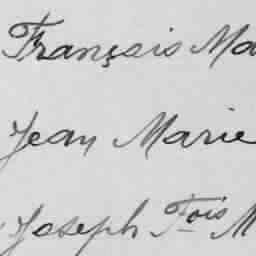 François Ma
Jean Marie
Joseph Fois M